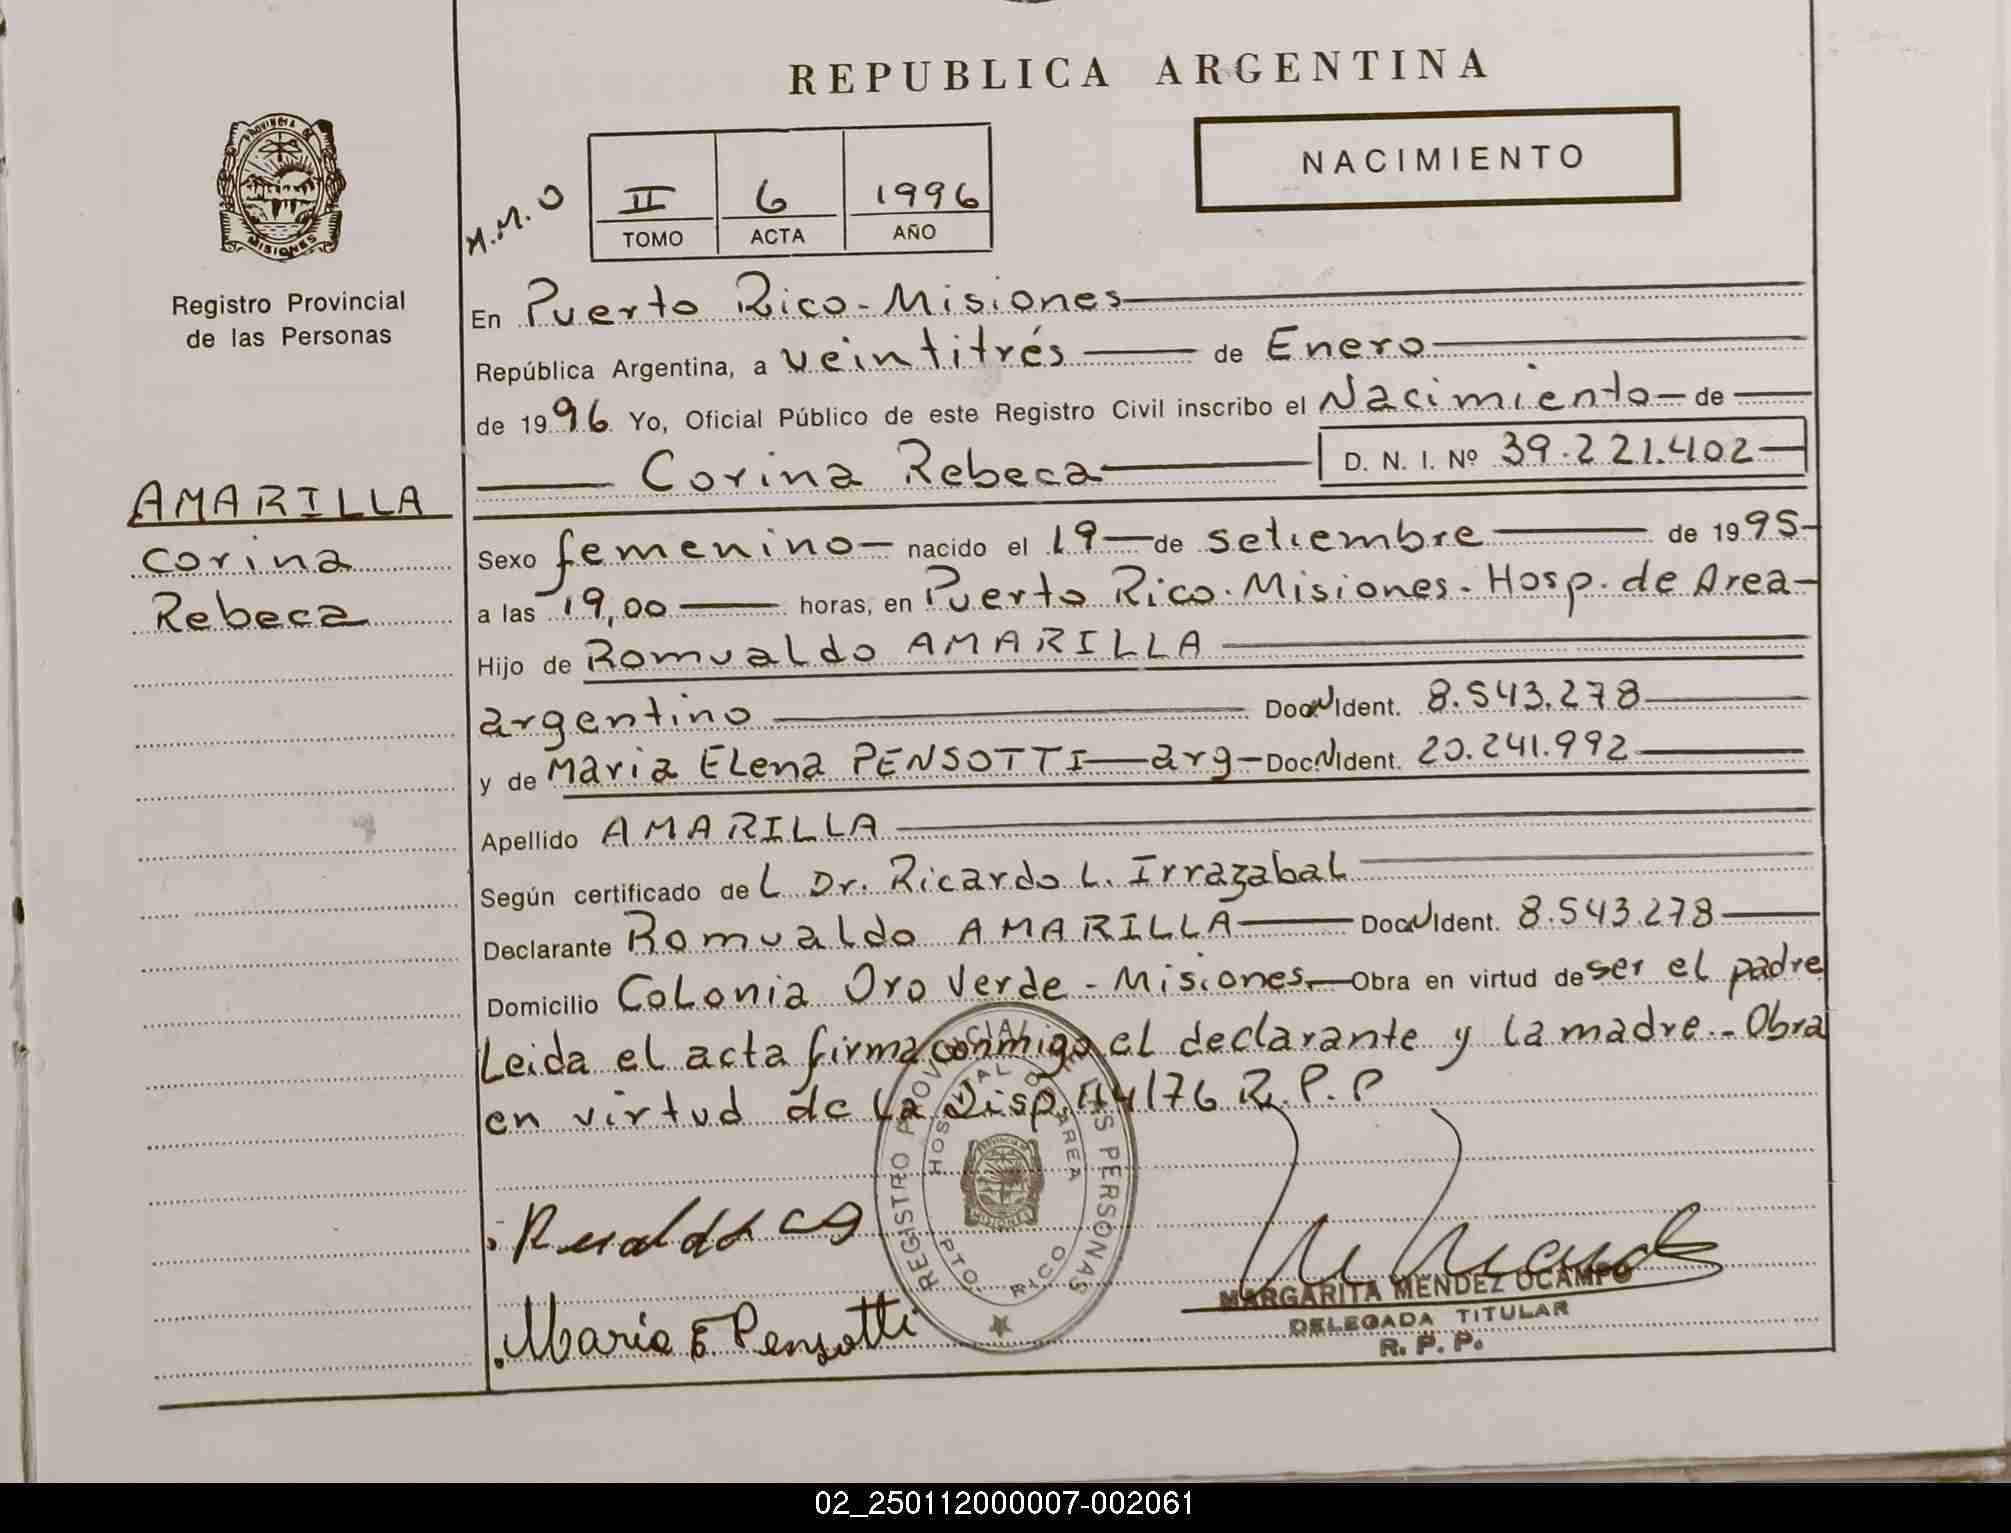 REPUBLICA ARGENTINA
NACIMIENTO
PROVINCIA DE
MISIONES
M.M.O
II 6 1996
TOMO ACTA AÑO
Registro Provincial
de las Personas
AMARILLA
Corina
Rebeca
En Puerto Rico - Misiones
República Argentina, a veintitrés de Enero
de 1996 Yo, Oficial Público de este Registro Civil inscribo el Nacimiento de
Corina Rebeca D. N. I. Nº 39.221.402
Sexo femenino nacido el 19 de setiembre de 1995
a las 19,00 horas, en Puerto Rico. Misiones. Hosp. de Area
Hijo de Romualdo AMARILLA
argentino Doc N Ident. 8.543.278
y de Maria Elena PENSOTTI arg Doc N Ident. 20.241.992
Apellido AMARILLA
Según certificado del Dr. Ricardo L. Irrazabal
Declarante Romualdo AMARILLA Doc N Ident. 8.543.278
Domicilio Colonia Oro Verde - Misiones. Obra en virtud de ser el padre
Leida el acta firma conmigo el declarante y la madre. - Obra
en virtud de la Disp. 44/76 R.P.P
REGISTRO PROVINCIAL DE LAS PERSONAS
HOSPITAL DE AREA
PTO. RICO
MISIONES
Maria E Pensotti
MARGARITA MENDEZ OCAMPO
DELEGADA TITULAR
R. P. P.
02_250112000007-002061